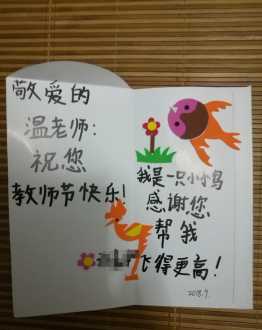 敬爱的
温老师:
祝您
教师节快乐!
我是一只小小鸟
感谢您
帮我
飞得更高!
2018.9.